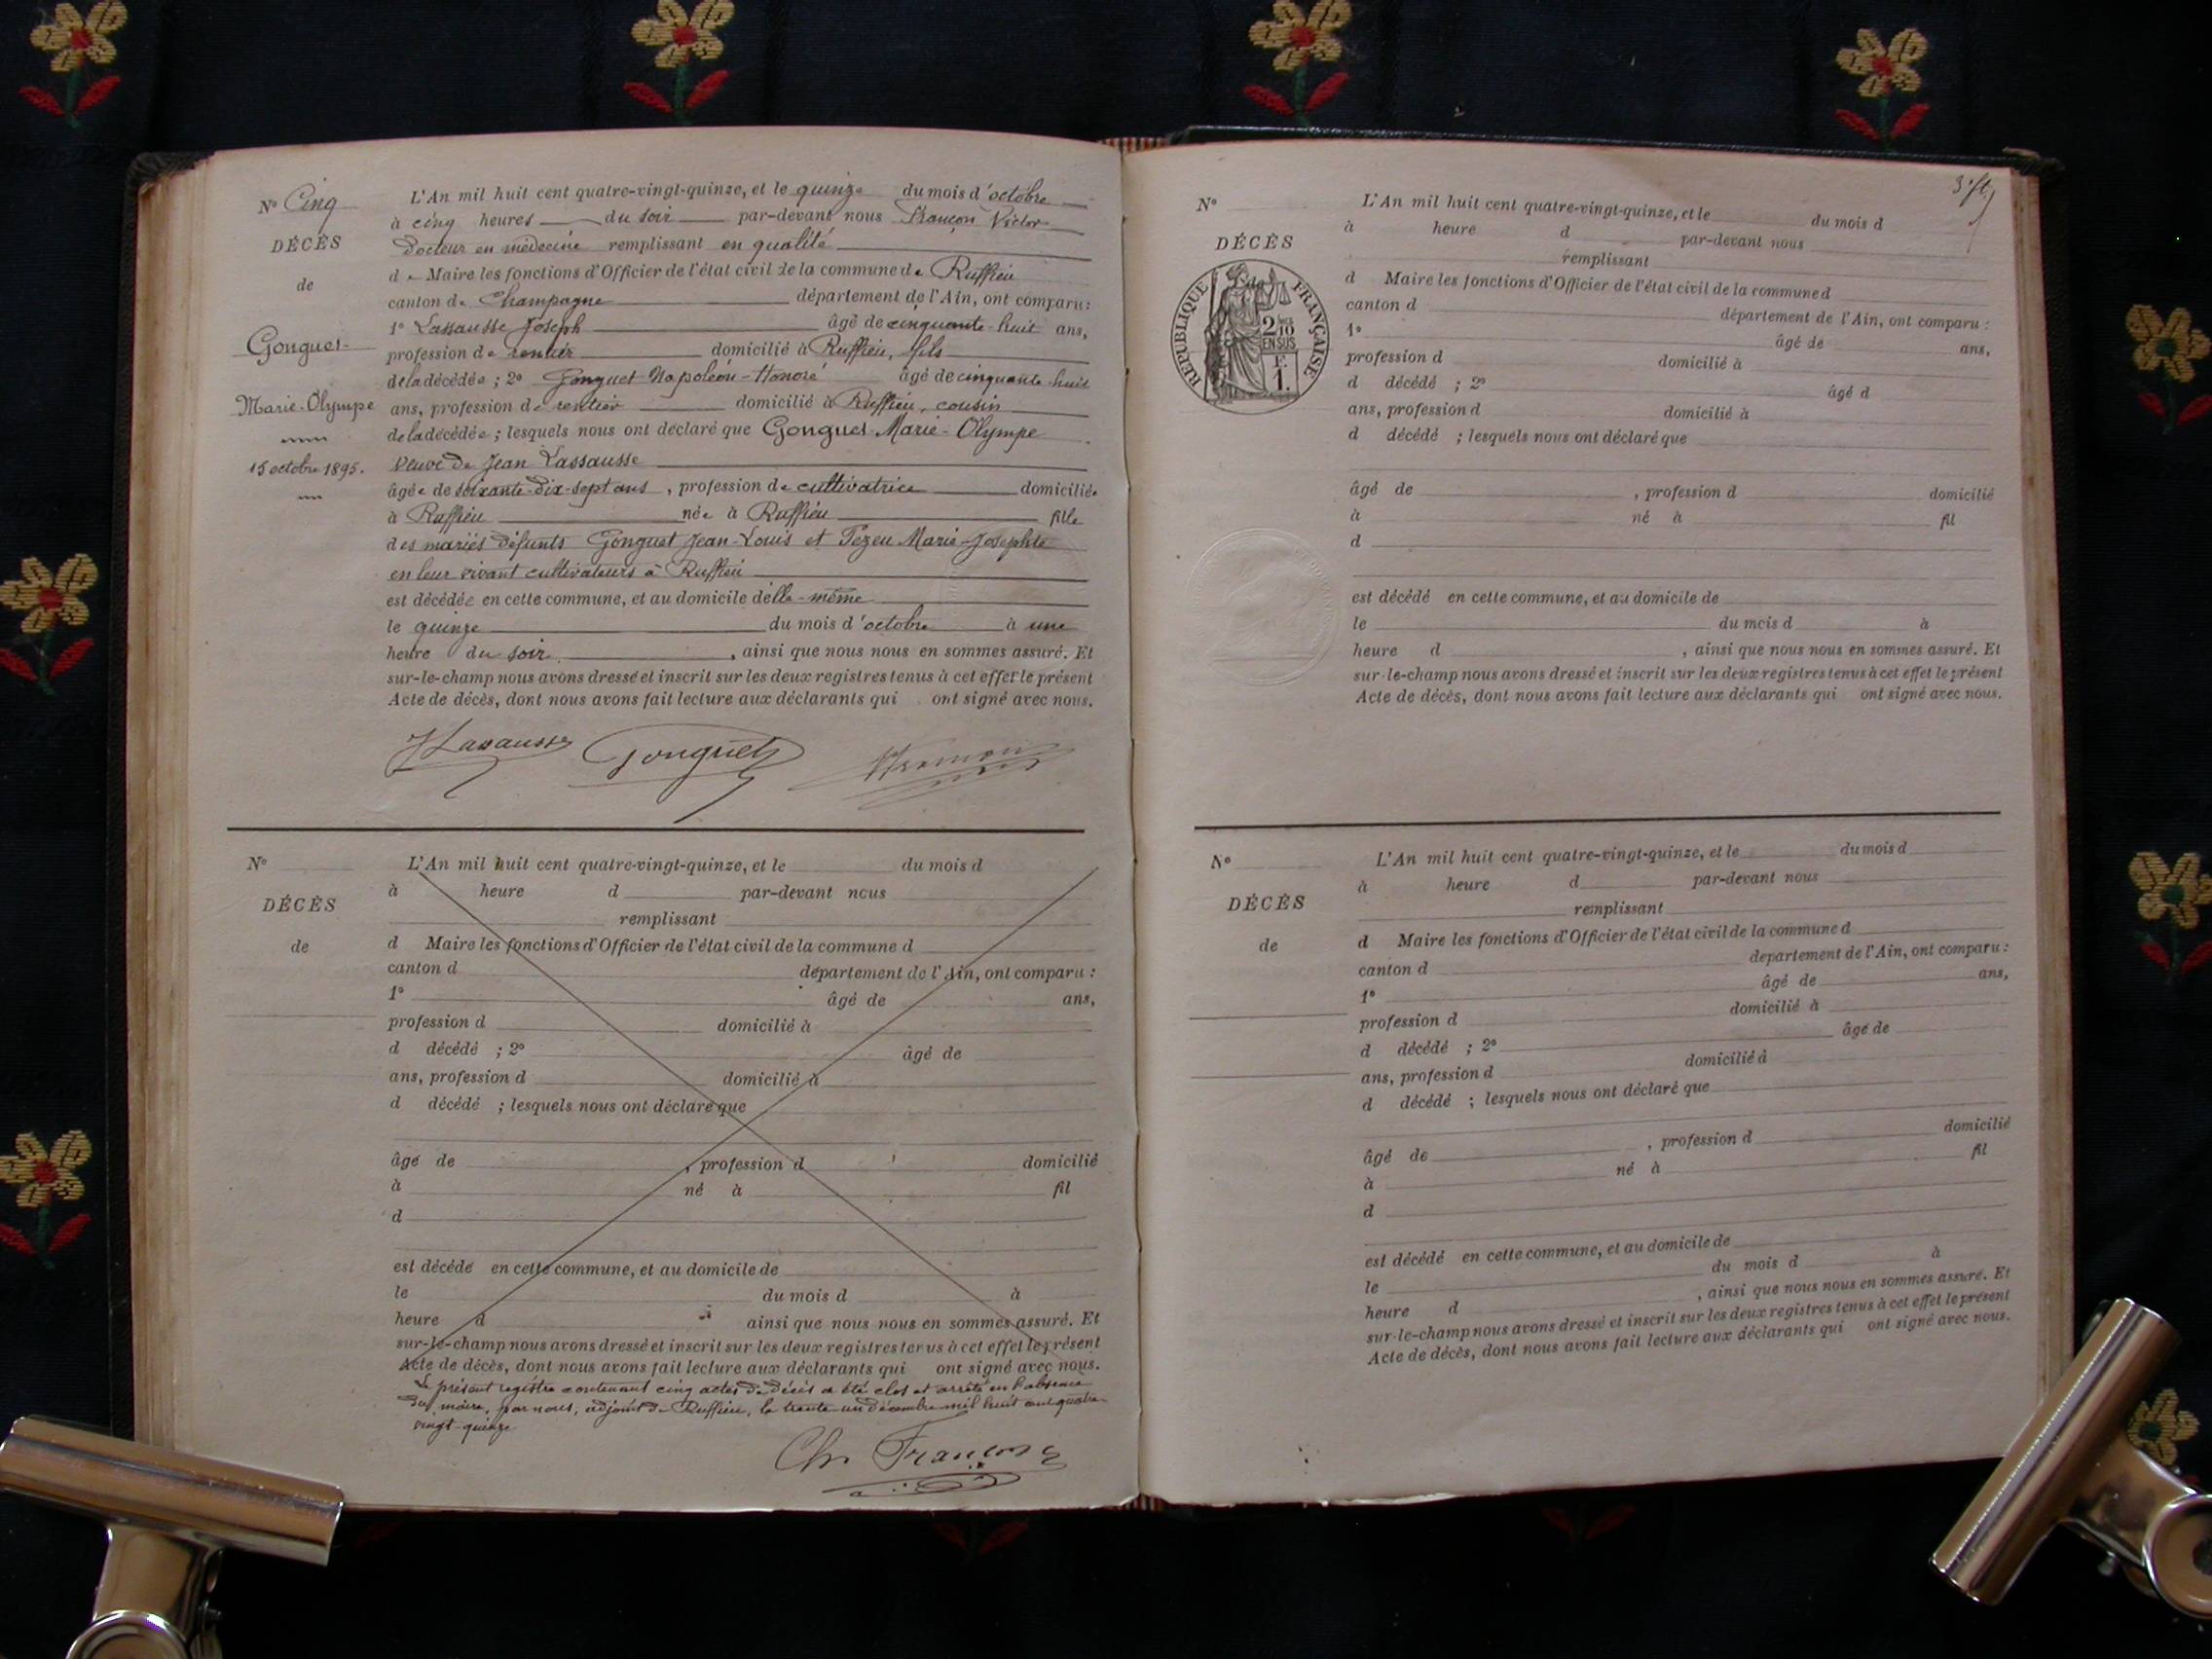 N° Cinq
DÉCÈS
de
Gonguet
Marie-Olympe
15 octobre 1895.
L'An mil huit cent quatre-vingt-quinze, et le quinze du mois d'octobre
à cinq heures du soir par-devant nous Françon Victor
Docteur en médecine remplissant en qualité
de Maire les fonctions d'Officier de l'état civil de la commune de Ruffieu
canton de Champagne département de l'Ain, ont comparu :
1° Lassausse Joseph âgé de cinquante-huit ans,
profession de rentier domicilié à Ruffieu, fils
de la décédée ; 2° Gonguet Napoléon-Honoré âgé de cinquante-huit
ans, profession de rentier domicilié à Ruffieu, cousin
de la décédée ; lesquels nous ont déclaré que Gonguet Marie-Olympe
veuve de Jean Lassausse
âgée de soixante-dix-sept ans, profession de cultivatrice domiciliée
à Ruffieu née à Ruffieu fille
des mariés défunts Gonguet Jean-Louis et Tezeu Marie-Josephte
en leur vivant cultivateurs à Ruffieu
est décédée en cette commune, et au domicile d'elle-même
le quinze du mois d'octobre à une
heure du soir, ainsi que nous nous en sommes assuré. Et
sur-le-champ nous avons dressé et inscrit sur les deux registres tenus à cet effet le présent
Acte de décès, dont nous avons fait lecture aux déclarants qui ont signé avec nous.
JLassausse Gonguet
N°
DÉCÈS
de
L'An mil huit cent quatre-vingt-quinze, et le du mois d
à heure d par-devant nous
remplissant
d Maire les fonctions d'Officier de l'état civil de la commune d
canton d département de l'Ain, ont comparu :
1° âgé de ans,
profession d domicilié à
d décédé ; 2° âgé de
ans, profession d domicilié à
d décédé ; lesquels nous ont déclaré que
âgé de , profession d domicilié
à né à fil
d
est décédé en cette commune, et au domicile de
le du mois d à
heure d ainsi que nous nous en sommes assuré. Et
sur-le-champ nous avons dressé et inscrit sur les deux registres tenus à cet effet le présent
Acte de décès, dont nous avons fait lecture aux déclarants qui ont signé avec nous.
Le présent registre contenant cinq actes de décès a été clos et arrêté en l'absence
du maire, par nous, adjoint de Ruffieu, le trente un décembre mil huit cent quatre
vingt-quinze
Ch. Françon
N°
DÉCÈS
RÉPUBLIQUE FRANÇAISE
2/10
EN SUS
F.
1.
L'An mil huit cent quatre-vingt-quinze, et le du mois d
à heure d par-devant nous
remplissant
d Maire les fonctions d'Officier de l'état civil de la commune d
canton d département de l'Ain, ont comparu :
1° âgé de ans,
profession d domicilié à
d décédé ; 2° âgé d
ans, profession d domicilié à
d décédé ; lesquels nous ont déclaré que
âgé de , profession d domicilié
à né à fil
d
est décédé en cette commune, et au domicile de
le du mois d à
heure d , ainsi que nous nous en sommes assuré. Et
sur-le-champ nous avons dressé et inscrit sur les deux registres tenus à cet effet le présent
Acte de décès, dont nous avons fait lecture aux déclarants qui ont signé avec nous.
N°
DÉCÈS
de
L'An mil huit cent quatre-vingt-quinze, et le du mois d
à heure d par-devant nous
remplissant
d Maire les fonctions d'Officier de l'état civil de la commune d
canton d département de l'Ain, ont comparu :
1° âgé de ans,
profession d domicilié à
d décédé ; 2° âgé de
ans, profession d domicilié à
d décédé ; lesquels nous ont déclaré que
âgé de , profession d domicilié
à né à fil
d
est décédé en cette commune, et au domicile de
le du mois d à
heure d , ainsi que nous nous en sommes assuré. Et
sur-le-champ nous avons dressé et inscrit sur les deux registres tenus à cet effet le présent
Acte de décès, dont nous avons fait lecture aux déclarants qui ont signé avec nous.